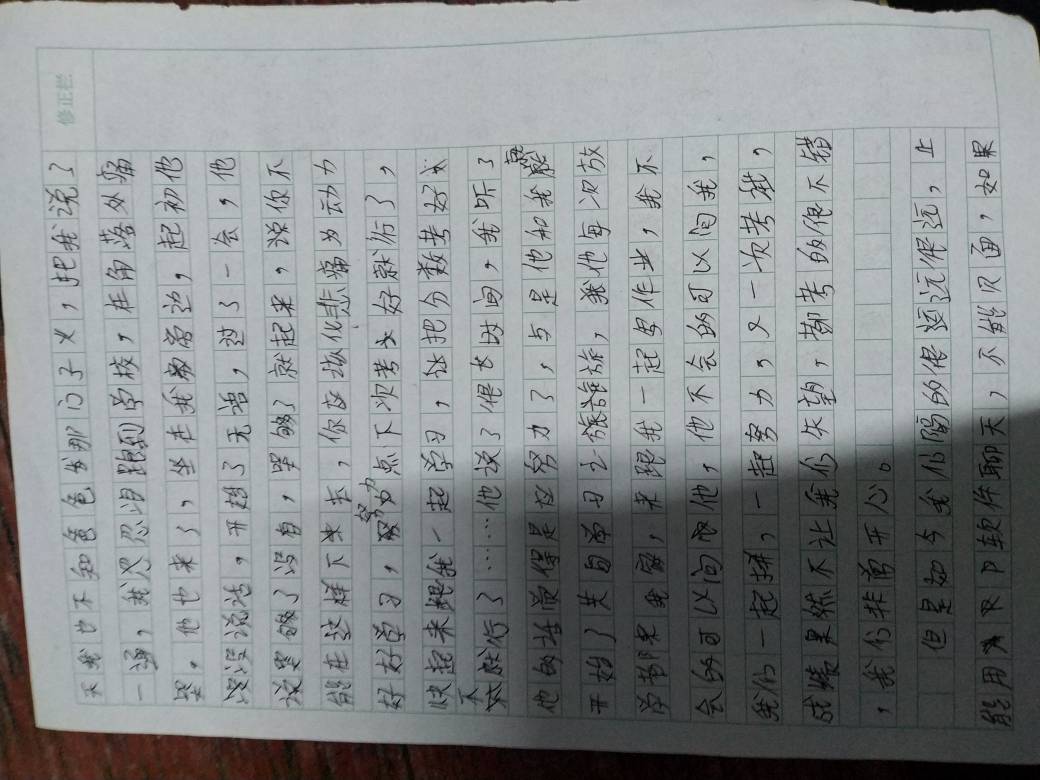 修正栏
天我也不知爸爸发那门子火，把我说了
一通，我没忍泪跑到学校，在角落处痛
哭。他也来了，坐在我旁边，起初他
没说话，开始了无语，过了一会，他
说哭够了没有，哭够了就起来，说你不
能在这样下来去，你应该化悲痛为动力
好好学习，努力点下次考好就行了，
快起来跟我一起学习，这把分数考好
不就行了……他说了很长时间，我听了
他的话觉得是该努力了，与是他和我就
开始了共同学习之旅，我他每次放
学都来我家，来跟我一起写作业，我不
会的可以问他，他不会的可以问我，
我们一起拼，一起努力，又一次考我，
成绩果然不让我们失望，都考的很不错
，我们非常开心。
但是如今我们隔的很远很远，止
能用软件聊天，不能见面，如果